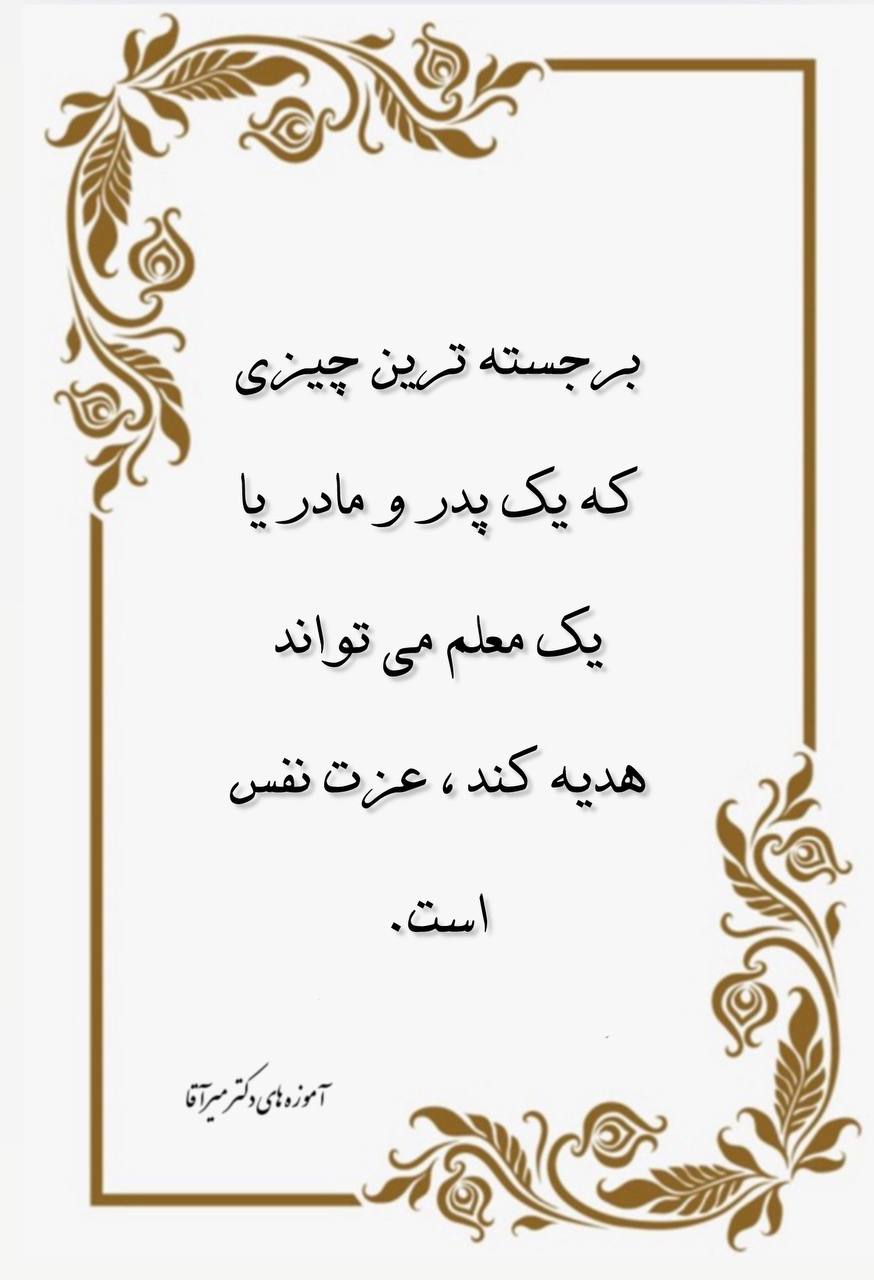 برجسته ترین چیزی
که یک پدر و مادر یا
یک معلم می تواند
هدیه کند، عزت نفس
است.
آموزه های دکتر میرآقا